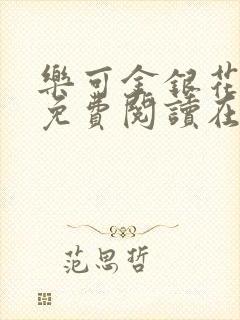 樂可金銀花
免費閱讀在
范思哲